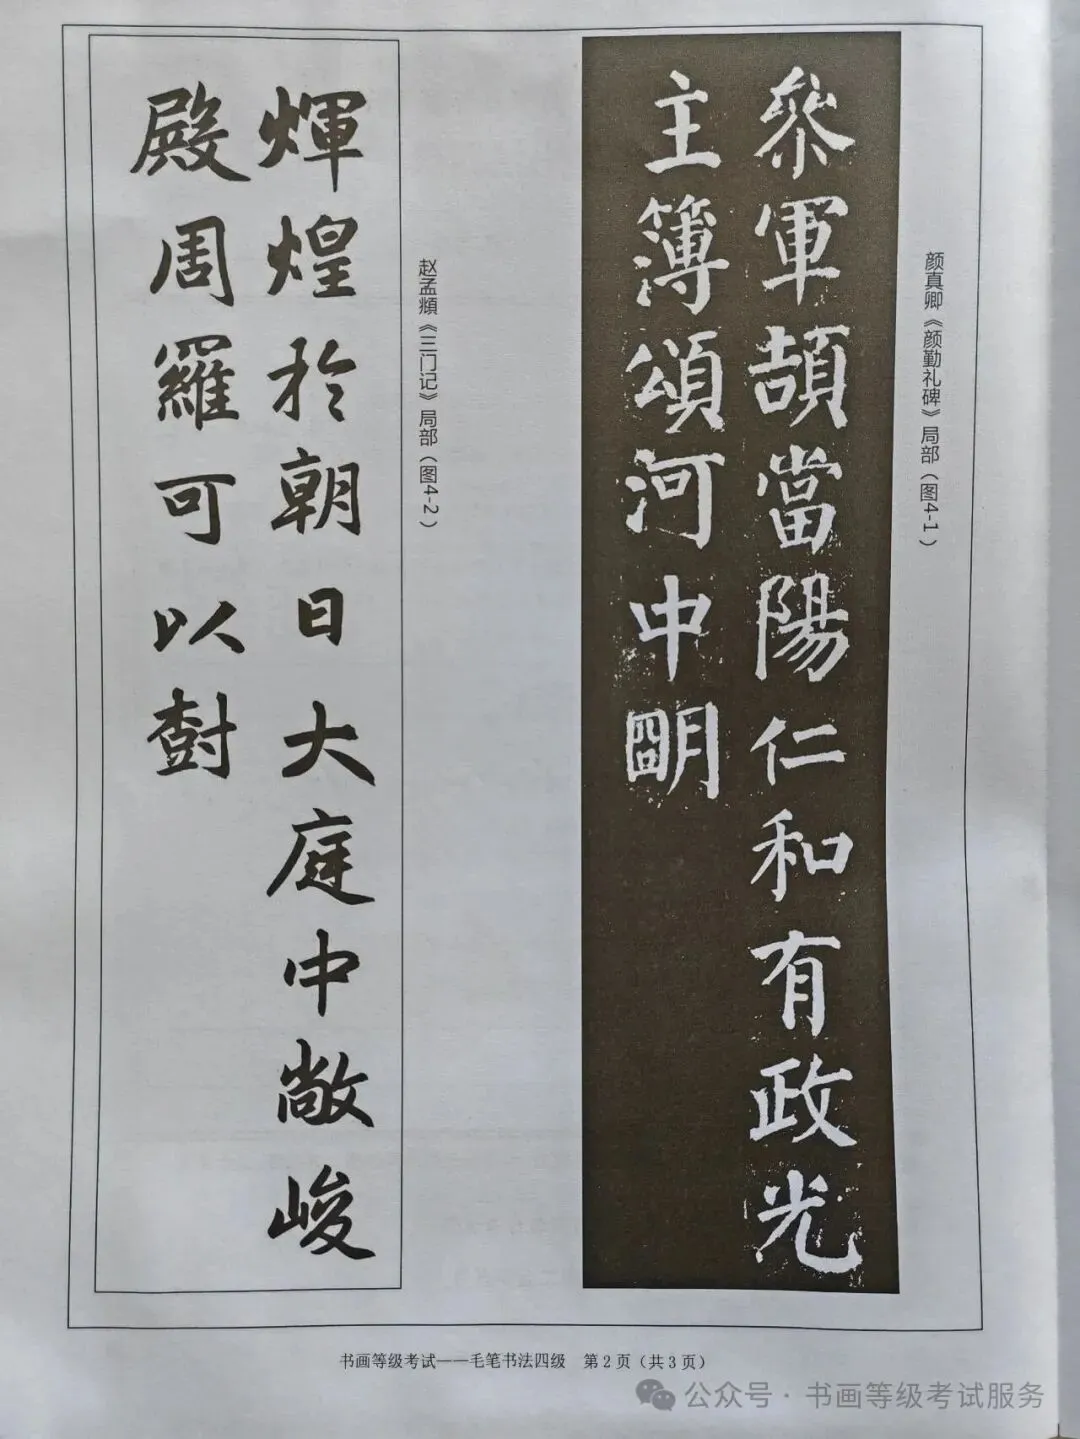 颜真卿《颜勤礼碑》局部（图4-1）
叅軍頡當陽仁和有政光
主簿頌河中朙
赵孟頫《三门记》局部（图4-2）
煇煌於朝日大庭中敞峻
殿周羅可以尌
书画等级考试——毛笔书法四级 第2页（共3页）
公众号·书画等级考试服务